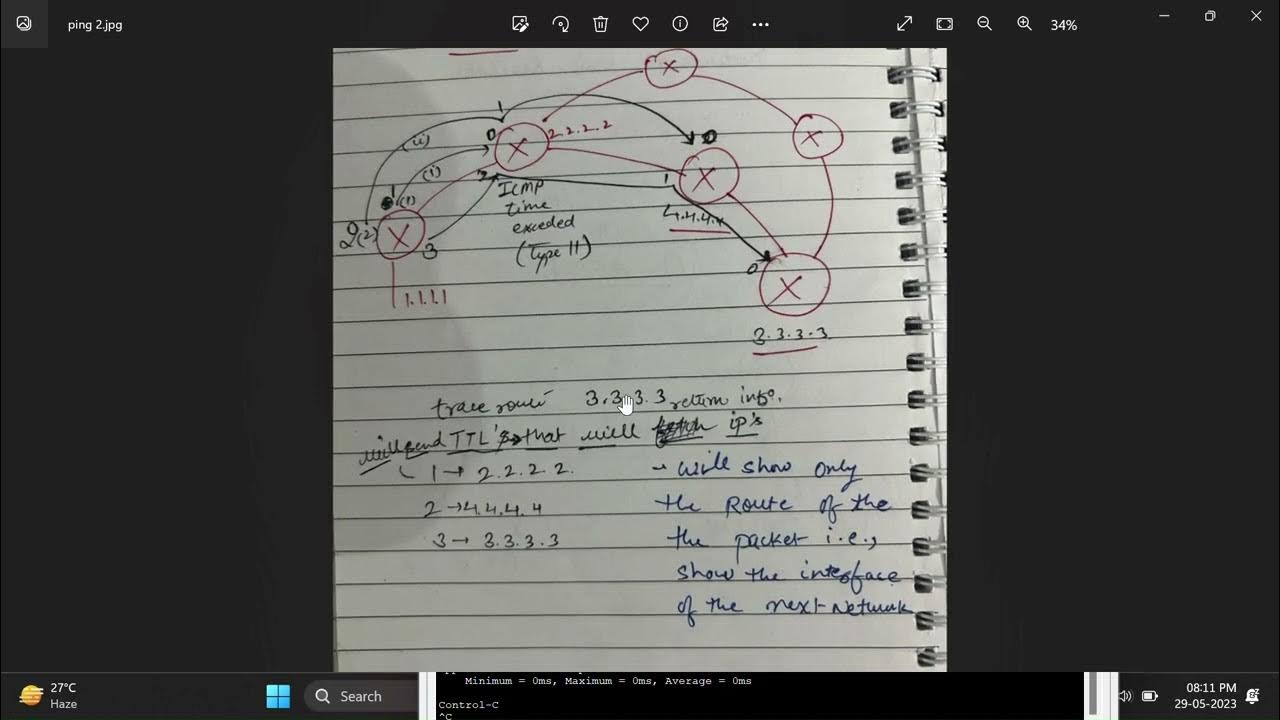 ping 2.jpg
34%
(ii)
1
0
2.2.2.2
0
(i)
1
(1)
2
ICMP
time
exceded
(Type 11)
1
4.4.4.4
2(2)
3
0
1.1.1.1
3.3.3.3
trace route 3.3.3.3 return info.
will send TTL's that will ip's
1 → 2.2.2.2.
2 → 4.4.4.4
3 → 3.3.3.3
- will show only
the Route of the
the packet i.e.,
show the interface
of the next Network
27°C
Haze
Search
Minimum = 0ms, Maximum = 0ms, Average = 0ms
Control-C
^C
08:11 PM
29-05-2023